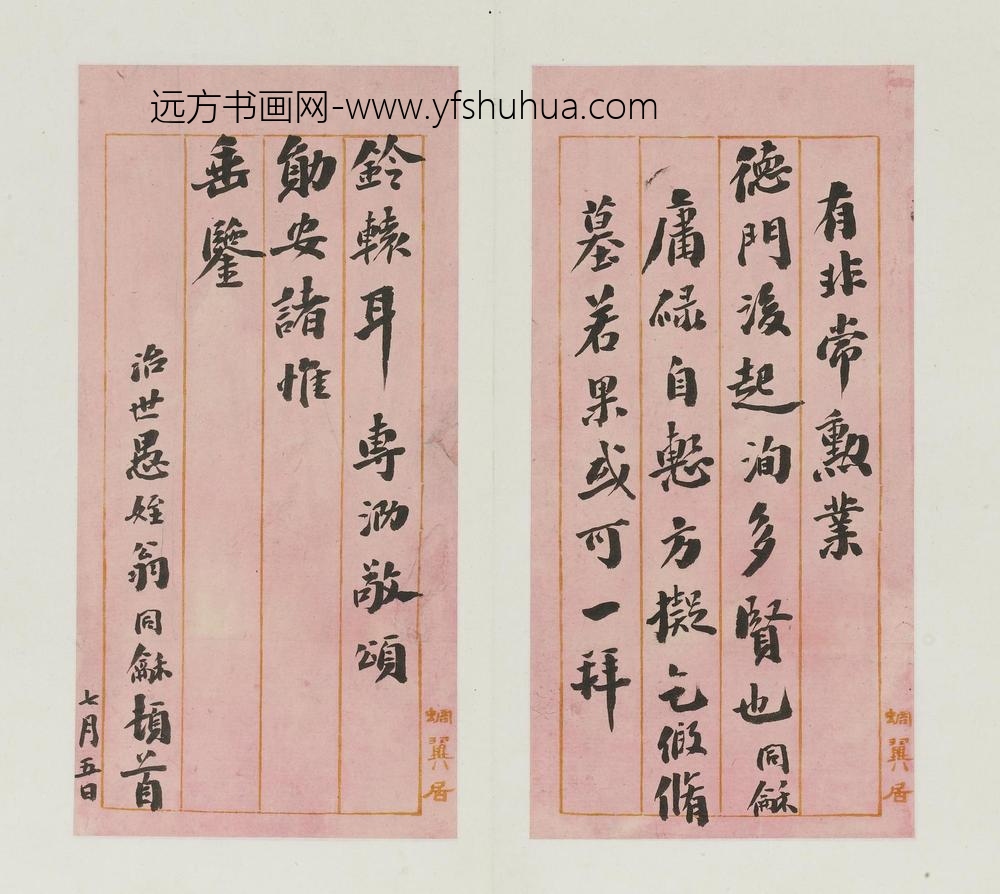 远方书画网-www.yfshuhua.com
有非常勲業
德門後起洵多賢也同龢
庸碌自慙方擬乞假脩
墓若果或可一拜
蜩翼居
鈴轅耳專泐敬頌
勛安諸惟
垂鑒
治世愚姪翁同龢頓首
七月五日
蜩翼居